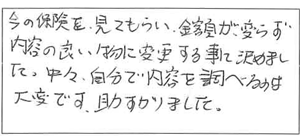 今の保険を見てもらい、金額が変らず
内容の良い物に変更する事で決めまし
た。中々、自分で内容を調べるのは
大変です、助すかりました。